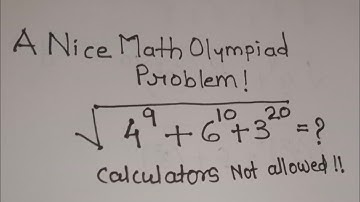 A Nice Math Olympiad
Problem!
√4⁹ + 6¹⁰ + 3²⁰ = ?
calculators Not allowed!!